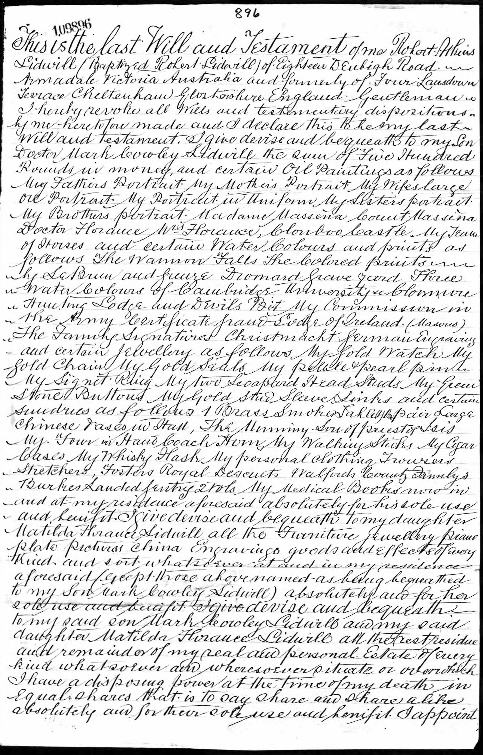 896
109896
This is the last Will and Testament of me Robert Athins
Lidwill (Baptized Robert Lidwill) of Eighteen Denbigh Road
Armadale Victoria Australia and formerly of Four Lansdown
Terrace Cheltenham Glostershire England Gentleman
I hereby revoke all Wills and testamentary dispositions
by me heretofore made and I declare this to be my last
Will and testament. I give devise and bequeath to my Son
Doctor Mark Cowley Lidwill the sum of Five Hundred
Pounds in money and certain Oil Paintings as follows
My Fathers Portrait My Mothers Portrait My Wifes large
oil Portrait My Portrait in Uniform My Sisters portrait
My Brothers portrait Madame Massena Count Massina
Doctor Florance Mrs Florance, Clonboo Castle My Team
of Horses and certain Water Colours and prints as
follows The Wannon Falls The Colored prints
The LeBrun and Greuze Dromard Grave yard Three
Water Colours of Cambridge University & Clonmore
Hunting Lodge and Devils Bit My Commission in
the Army Certificate Grand Lodge of Ireland (Masons)
The Family Signatures Christmacht German Engraving
and certain Jewellery as follows My Gold Watch My
Gold Chain My Gold Seals My plate & pearl pin
My Signet Ring My two Leopard Head Studs My Green
Stone Buttons My Gold Stud Sleeve Links and certain
sundries as follows 1 Brass Smokers pair Large
Chinese Vases in Hall, The Mummy Son of priest of Isis
My Four in Hand Coach Horn, My Walking Sticks My Cigar
Cases My Whisky Flask My personal clothing Trousers
Stretchers, Fosters Royal Descents Walfords County Familys
Burkes Landed Gentry 2 Vols My Medical Books now in
and at my residence aforesaid absolutely for his sole use
and benefit I give devise and bequeath to my daughter
Matilda Florance Lidwill all the Furniture jewellery piano
plate pictures China Engravings goods and effects of every
kind and sort whatsoever at and in my residence
aforesaid (except those above named as being bequeathed
to my Son Mark Cowley Lidwill) absolutely and for her
sole use and benefit I give devise and bequeath
to my said Son Mark Cowley Lidwill and my said
daughter Matilda Florance Lidwill all the rest residue
and remainder of my real and personal Estate of every
kind whatsoever and wheresoever situate or over which
I have a disposing power at the time of my death in
equal shares that is to say share and share alike
absolutely and for their sole use and benefit I appoint